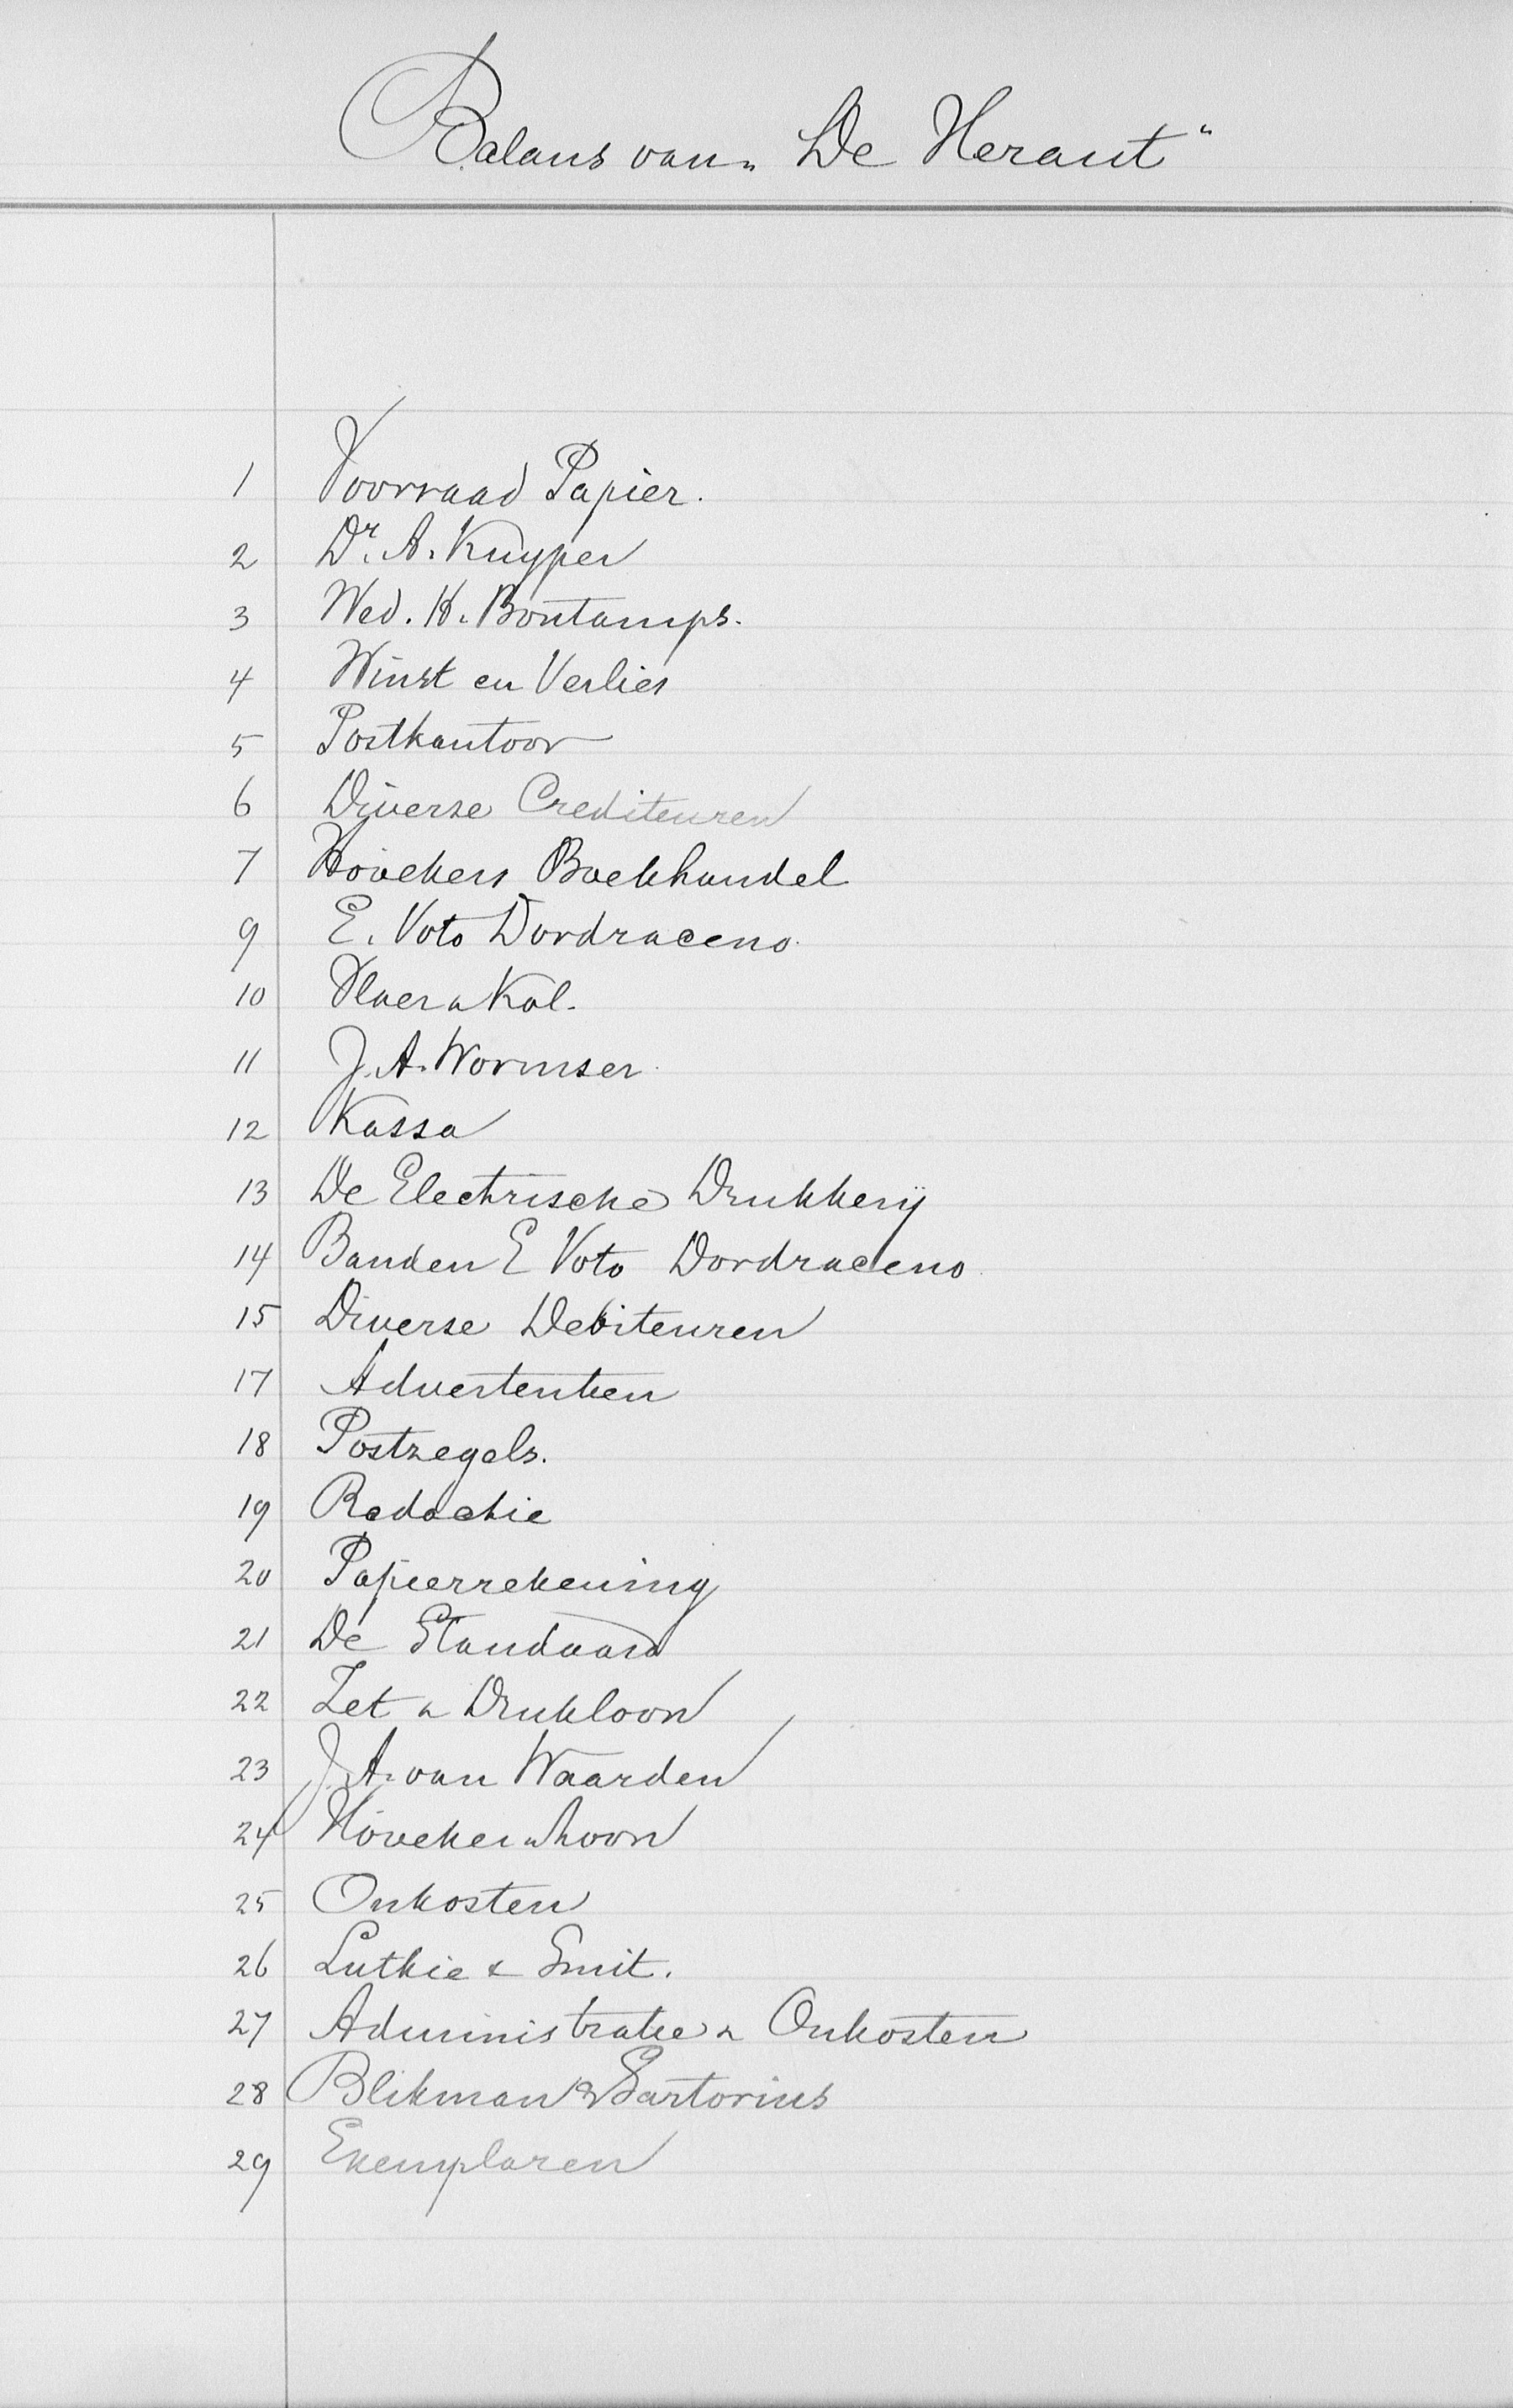 Balans van „De Heraut“
1 Voorraad Papier.
2 Dr. A. Kuyper
3 Wed. H. Bontamps.
4 Winst en Verlies
5 Postkantoor
6 Diverse Crediteuren
7 Hövekers Boekhandel
9 E. Voto Dordraceno.
10 Vlaer & Kol.
11 J. A. Wormser
12 Kassa
13 De Electrische Drukkerij
14 Banden E Voto Dordraceno
15 Diverse Debiteuren
17 Advertentien
18 Postzegels.
19 Redactie
20 Papierrekening
21 De Standaard
22 Zet & Drukloon
23 J. A. van Waarden
24 Höveker & Zoon
25 Onkosten
26 Luthie & Smit.
27 Administratie & Onkosten
28 Blikman & Sartorius
29 Exemplaren